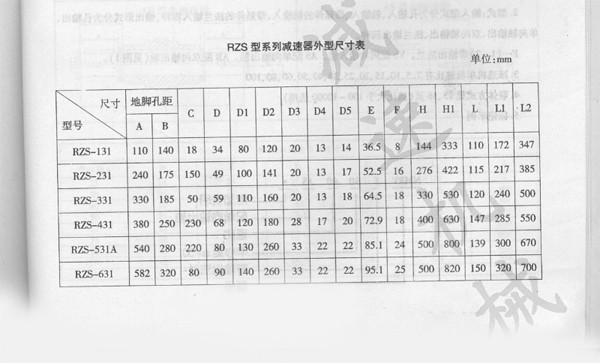 RZS 型系列减速器外型尺寸表
单位:mm
尺寸 型号 地脚孔距 C D D1 D2 D3 D4 D5 E F H H1 L L1 L2
A B
RZS-131 110 140 18 34 80 120 20 13 14 36.5 8 144 333 110 172 347
RZS-231 240 175 150 49 100 141 20 13 17 52.5 16 276 422 115 217 385
RZS-331 330 185 50 59 110 160 20 13 18 64.5 18 330 530 120 240 500
RZS-431 380 250 230 68 120 180 28 17 20 72.9 18 400 630 147 285 550
RZS-531A 540 280 220 80 130 260 33 22 22 85.1 24 500 800 139 300 670
RZS-631 582 320 80 90 140 260 33 22 22 95.1 25 500 820 150 320 700
减
速
机
械